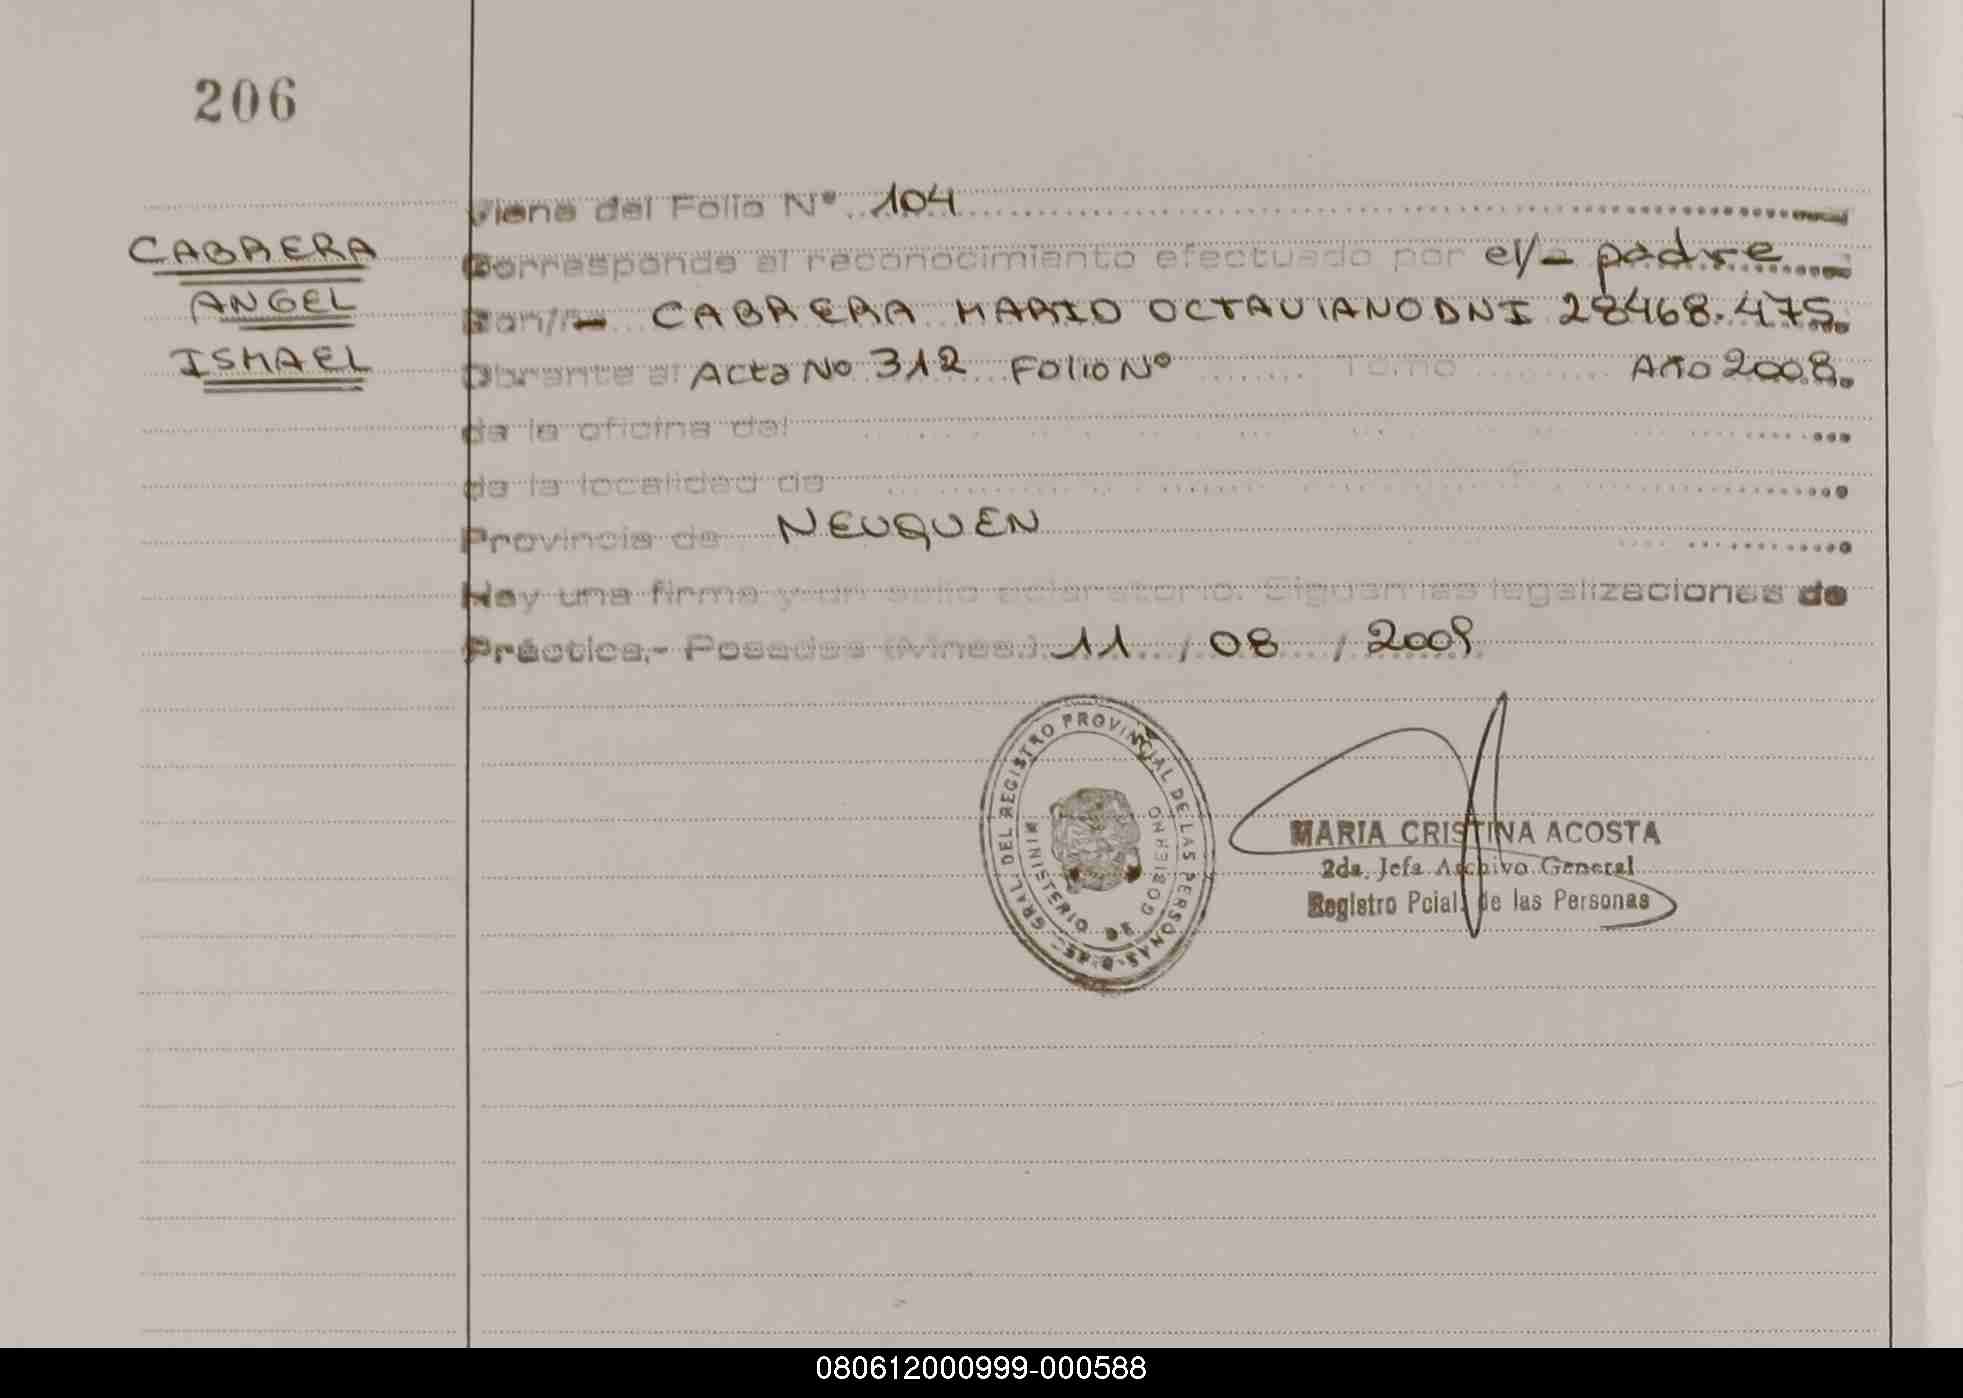 206
CABRERA
ANGEL
ISMAEL
Viene del Folio Nº 104
Corresponde al reconocimiento efectuado por el/- padre
Don/ña- CABRERA MARIO OCTAVIANO DNI 28468.475.
Obrante al Acta No 312 Folio Nº Tomo Año 2008.
de la oficina del
de la localidad de
Provincia de NEUQUEN
Hay una firma y un sello aclaratorio. Siguen las legalizaciones de
Práctica.- Posadas (Mnes.) 11 / 08 / 2009
GRAL. DEL REGISTRO PROVINCIAL DE LAS PERSONAS
MINISTERIO DE GOBIERNO
MARIA CRISTINA ACOSTA
2da. Jefa Archivo General
Registro Pcial. de las Personas
080612000999-000588